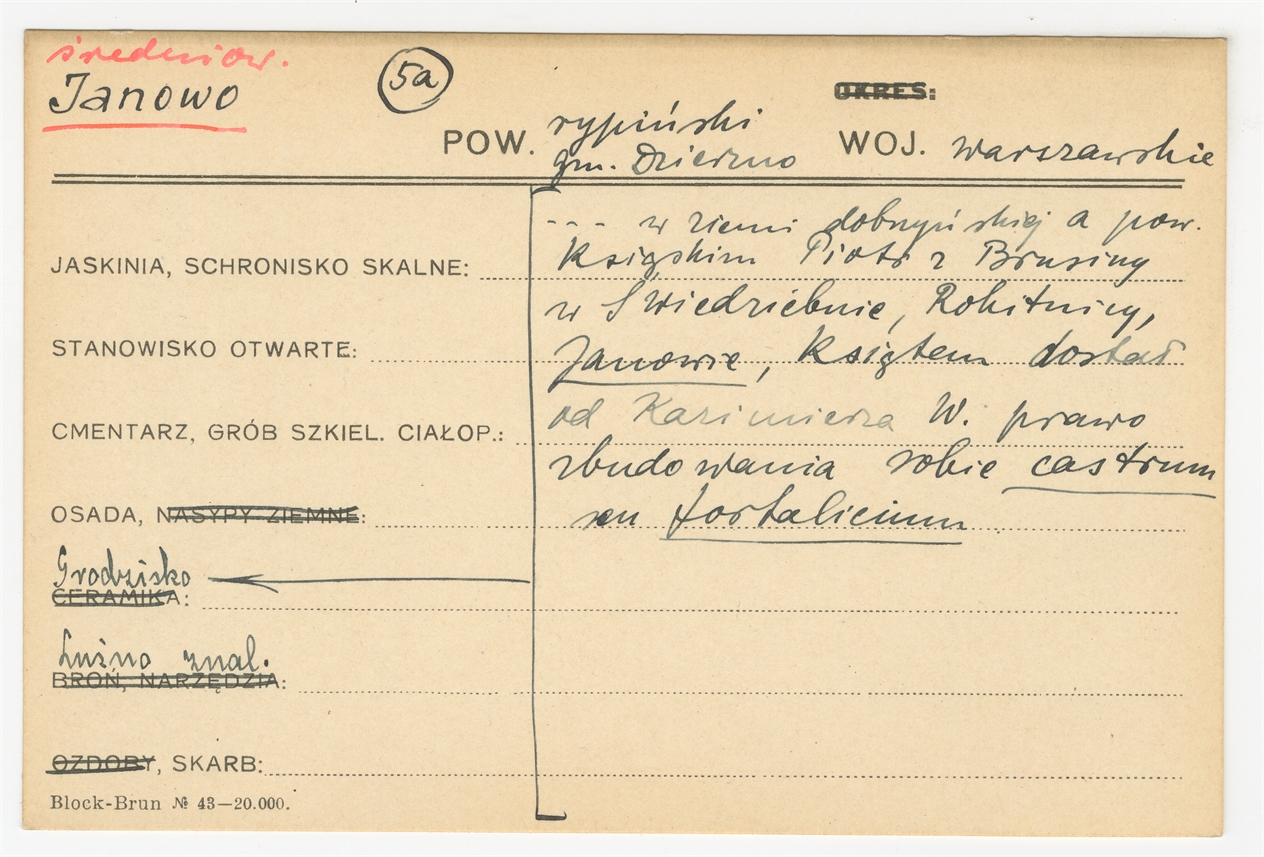 średniow.
Janowo
5a
OKRES:
POW. rypiński
gm. Dzierzno
WOJ. warszawskie
--- w ziemi dobrzyńskiej a pow.
JASKINIA, SCHRONISKO SKALNE:
Książskim Piotr z Brusiny
w Swiedziebnie, Rokitnicy,
STANOWISKO OTWARTE:
Janowie, Księtem dostał
od Kazimierza W. prawo
CMENTARZ, GRÓB SZKIEL. CIAŁOP.:
zbudowania sobie castrum
OSADA, NASYPY ZIEMNE:
seu fortalicium
Grodzisko
CERAMIKA:
Luźno znal.
BROŃ, NARZĘDZIA:
OZDOBY, SKARB:
Block-Brun № 43—20.000.